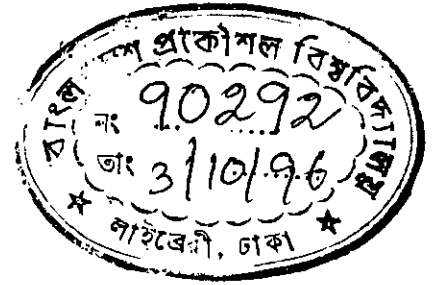 বাংলাদেশ প্রকৌশল বিশ্ববিদ্যালয়
নং 90292
তাং 3/10/96
লাইব্রেরী, ঢাকা